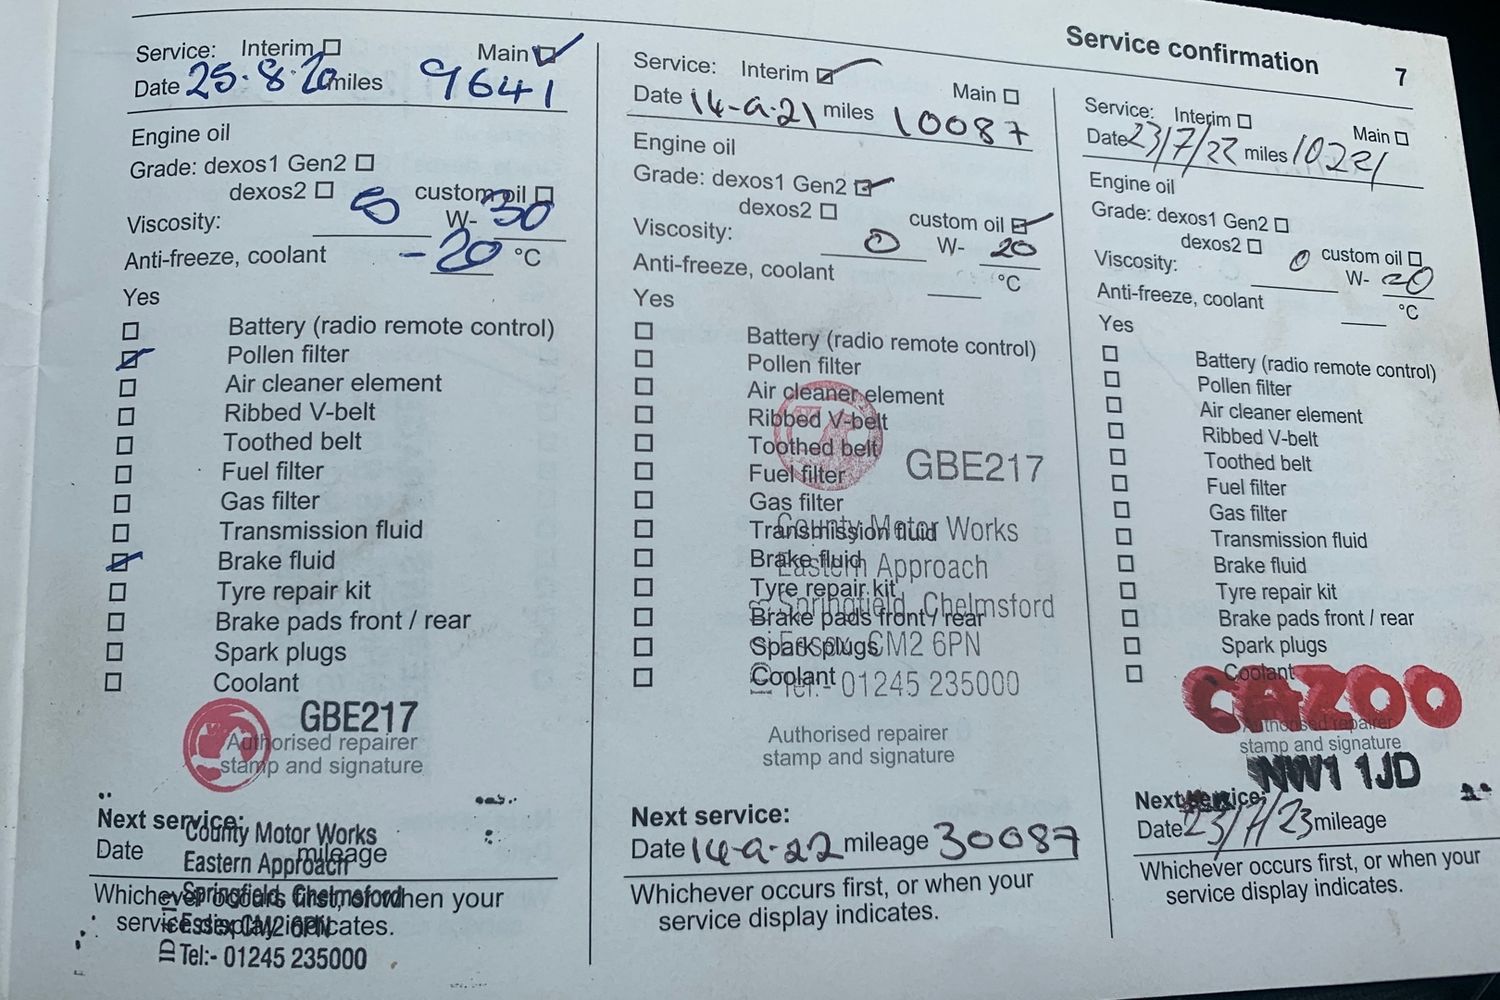 Service confirmation 7
Service: Interim Main
Date 25.8.20 miles 9641
Engine oil
Grade: dexos1 Gen2
dexos2 custom oil
Viscosity: 5 W- 30
Anti-freeze, coolant -20 °C
Yes
Battery (radio remote control)
Pollen filter
Air cleaner element
Ribbed V-belt
Toothed belt
Fuel filter
Gas filter
Transmission fluid
Brake fluid
Tyre repair kit
Brake pads front / rear
Spark plugs
Coolant
GBE217
Authorised repairer
stamp and signature
Next service:
County Motor Works
Date mileage
Eastern Approach
Whichever occurs first, or when your
Springfield, Chelmsford
service display indicates.
Essex CM2 6PN
Tel:- 01245 235000
Service: Interim Main
Date 14-9-21 miles 10087
Engine oil
Grade: dexos1 Gen2
dexos2 custom oil
Viscosity: 0 W- 20
Anti-freeze, coolant °C
Yes
Battery (radio remote control)
Pollen filter
Air cleaner element
Ribbed V-belt
Toothed belt
GBE217
Fuel filter
Gas filter
Transmission fluid
County Motor Works
Brake fluid
Eastern Approach
Tyre repair kit
Springfield, Chelmsford
Brake pads front / rear
Spark plugs
Essex CM2 6PN
Coolant
Tel:- 01245 235000
Authorised repairer
stamp and signature
Next service:
Date 14-9-22 mileage 30087
Whichever occurs first, or when your
service display indicates.
Service: Interim Main
Date 23/7/22 miles 10221
Engine oil
Grade: dexos1 Gen2
dexos2 custom oil
Viscosity: 0 W- 20
Anti-freeze, coolant °C
Yes
Battery (radio remote control)
Pollen filter
Air cleaner element
Ribbed V-belt
Toothed belt
Fuel filter
Gas filter
Transmission fluid
Brake fluid
Tyre repair kit
Brake pads front / rear
Spark plugs
Coolant
CAZOO
Authorised repairer
stamp and signature
NW1 1JD
Next service:
Date 23/7/23 mileage
Whichever occurs first, or when your
service display indicates.